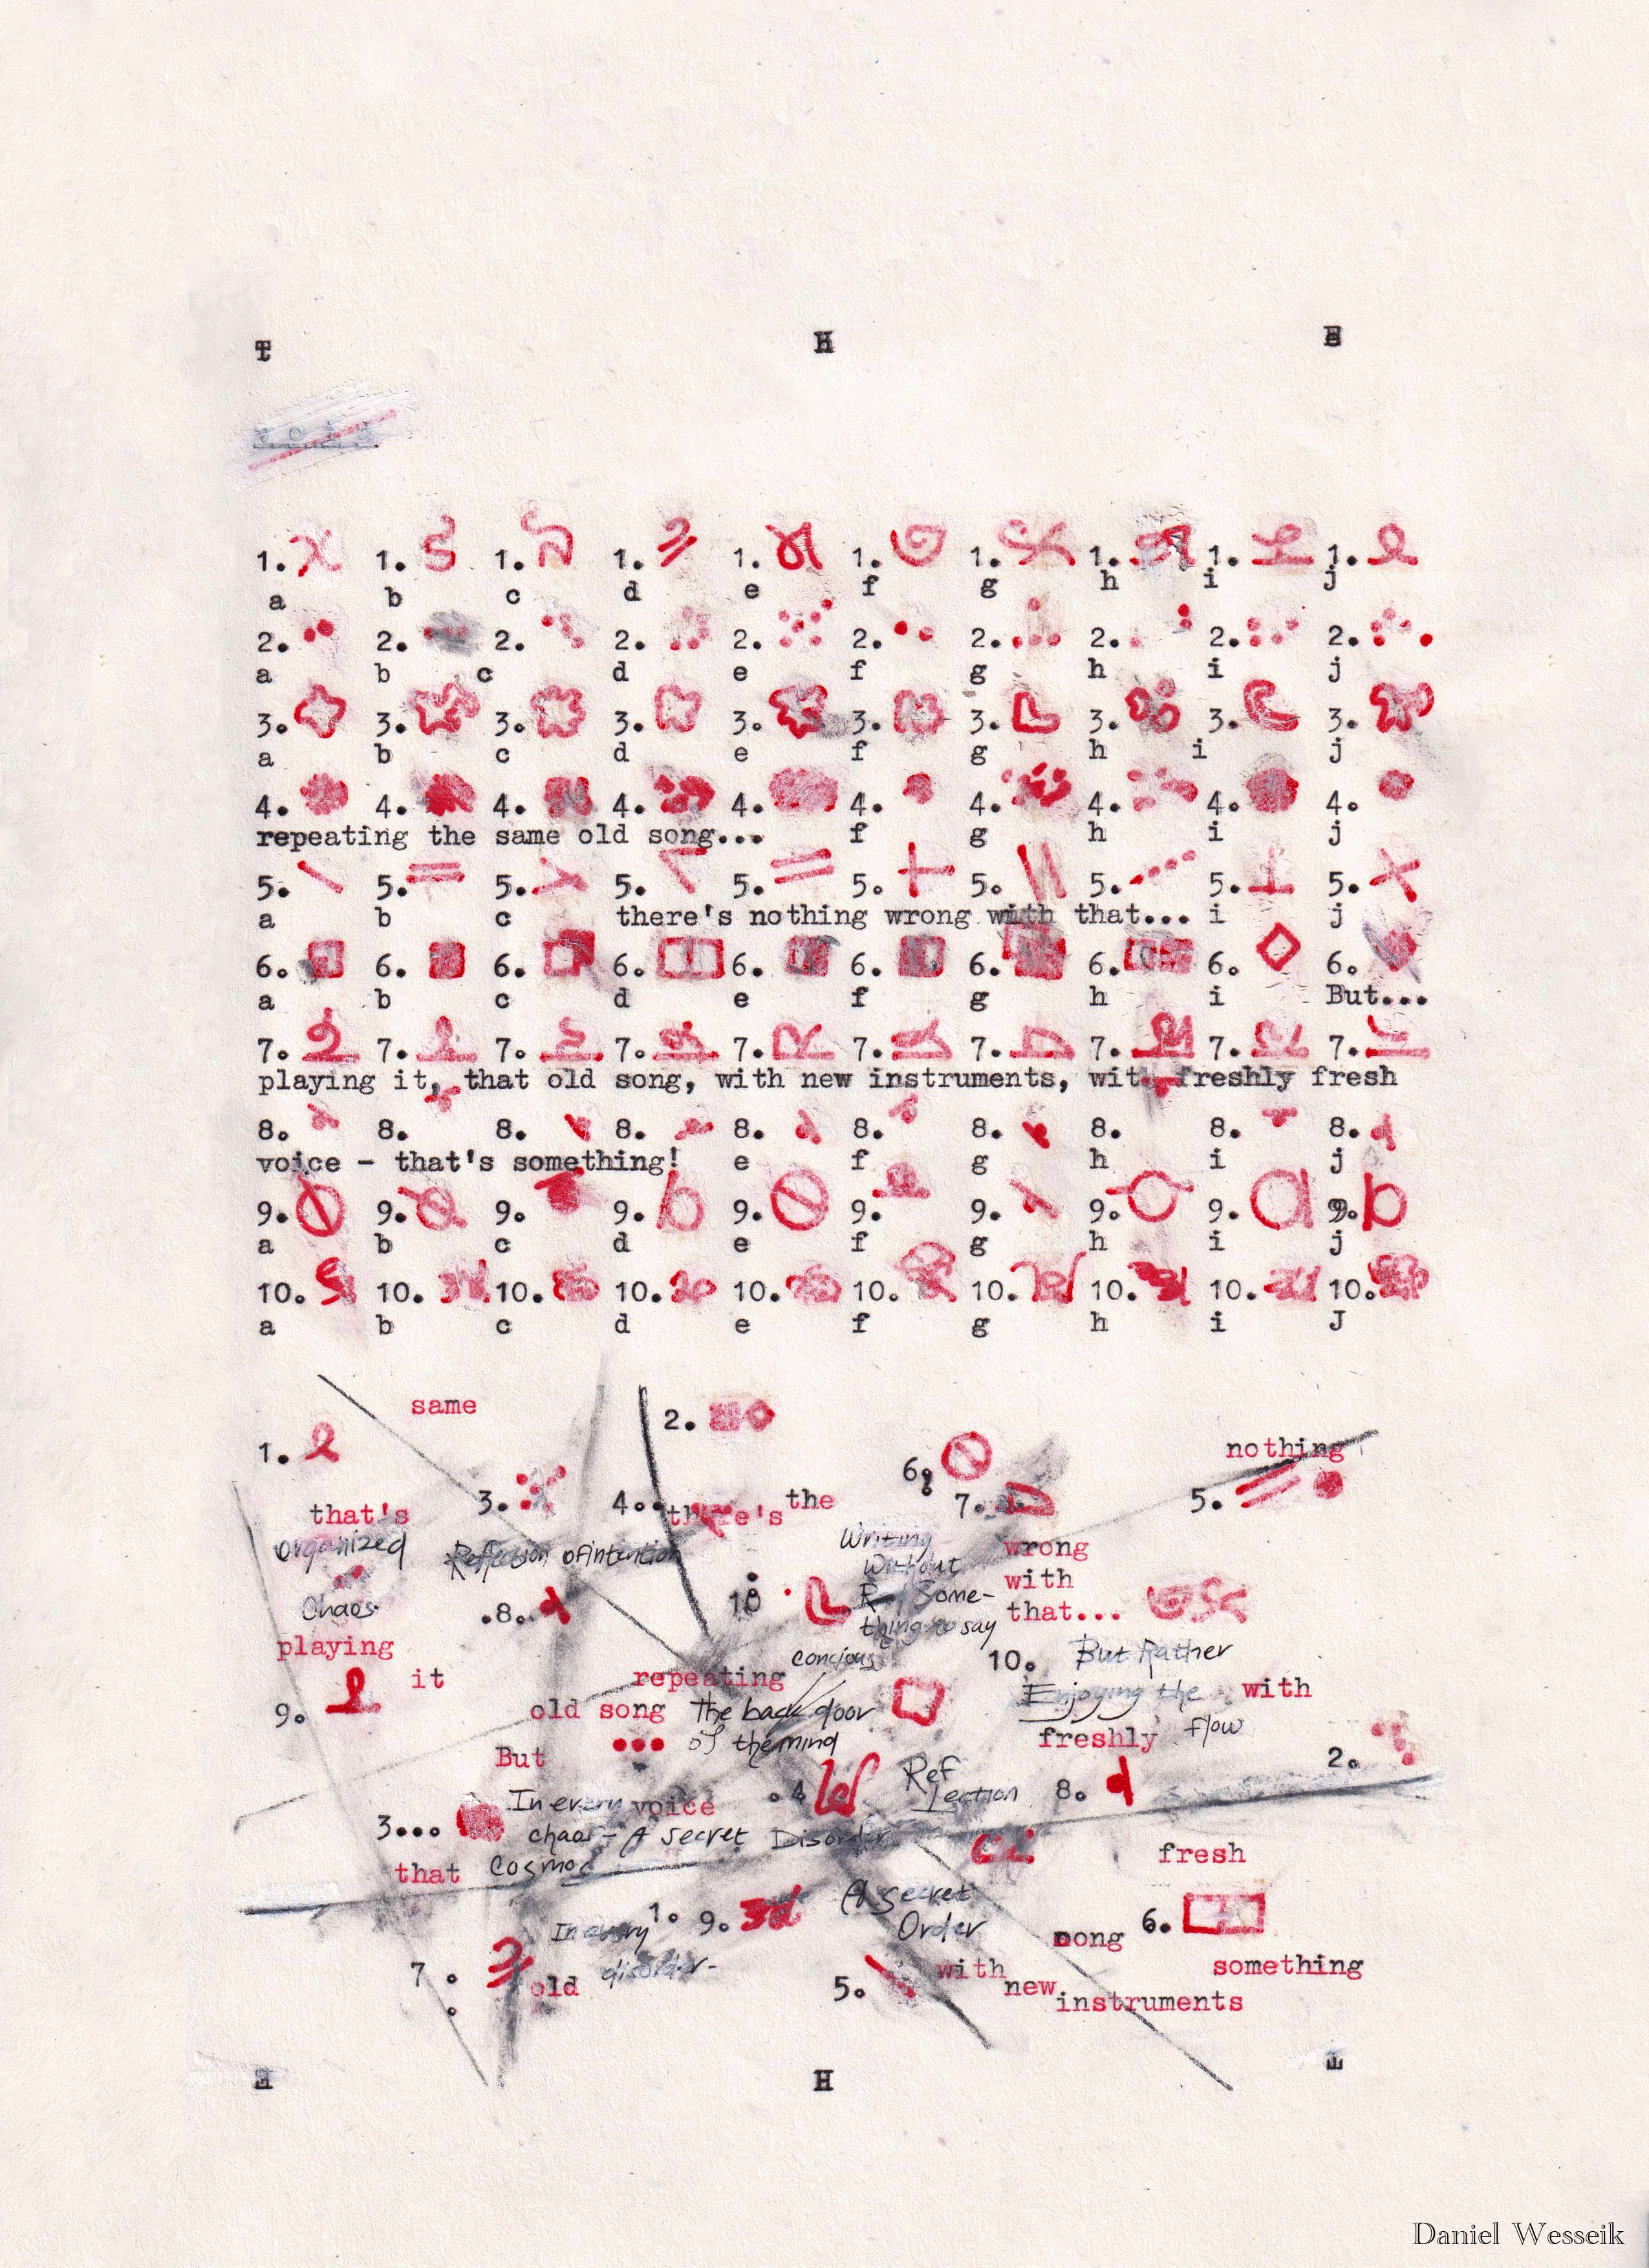 T H E
1. 1. 1. 1. 1. 1. 1. 1. 1. 1.
a b c d e f g h i j
2. 2. 2. 2. 2. 2. 2. 2. 2. 2.
a b c d e f g h i j
3. 3. 3. 3. 3. 3. 3. 3. 3. 3.
a b c d e f g h i j
4. 4. 4. 4. 4. 4. 4. 4. 4. 4.
repeating the same old song... f g h i j
5. 5. 5. 5. 5. 5. 5. 5. 5. 5.
a b c there's nothing wrong with that... i j
6. 6. 6. 6. 6. 6. 6. 6. 6. 6.
a b c d e f g h i But...
7. 7. 7. 7. 7. 7. 7. 7. 7. 7.
playing it, that old song, with new instruments, with freshly fresh
8. 8. 8. 8. 8. 8. 8. 8. 8. 8.
voice - that's something! e f g h i j
9. 9. 9. 9. 9. 9. 9. 9. 9. 9.
a b c d e f g h i j
10. 10. 10. 10. 10. 10. 10. 10. 10. 10.
a b c d e f g h i J
same
2.
1.
nothing
6.
3. 4.. there's the
7. 5.
that's
organized
Reflection of intention
Writing
Without
wrong
with
Some-
Chaos
.8. 10
thing to say
that...
playing
concious
10. But Rather
it
repeating
9.
old song
The back door
Enjoying the
with
But
of the mind
freshly
flow
2.
Ref
lection
8.
.4
In every voice
3...
chaos - A secret Disorder
that
Cosmos
fresh
A secret
Order
In every
1. 9.
6.
disorder-
7.
old
5.
with
new
something
instruments
E H T
Daniel Wesseik